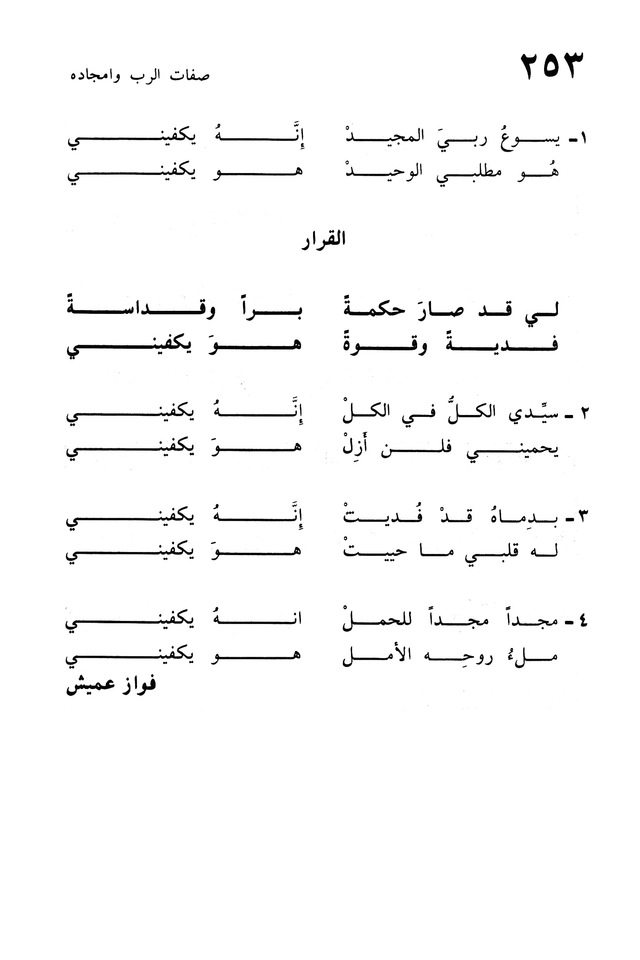 ٢٥٣
صفات الرب وامجاده
١- يسوعُ ربيَ المجيدْ إنَّهُ يكفيني
هُو مطلبي الوحيدْ هو يكفيني
القرار
لي قد صارَ حكمةً براً وقداسةً
فديةً وقوةً هوَ يكفيني
٢- سيِّدي الكلُّ في الكلْ إنَّهُ يكفيني
يحميني فلن أَزِلْ هوَ يكفيني
٣- بدِماهُ قدْ فُديتْ إنَّهُ يكفيني
له قلبي ما حييتْ هوَ يكفيني
٤- مجداً مجداً للحملْ انهُ يكفيني
ملءُ روحِه الأمل هو يكفيني
فواز عميش